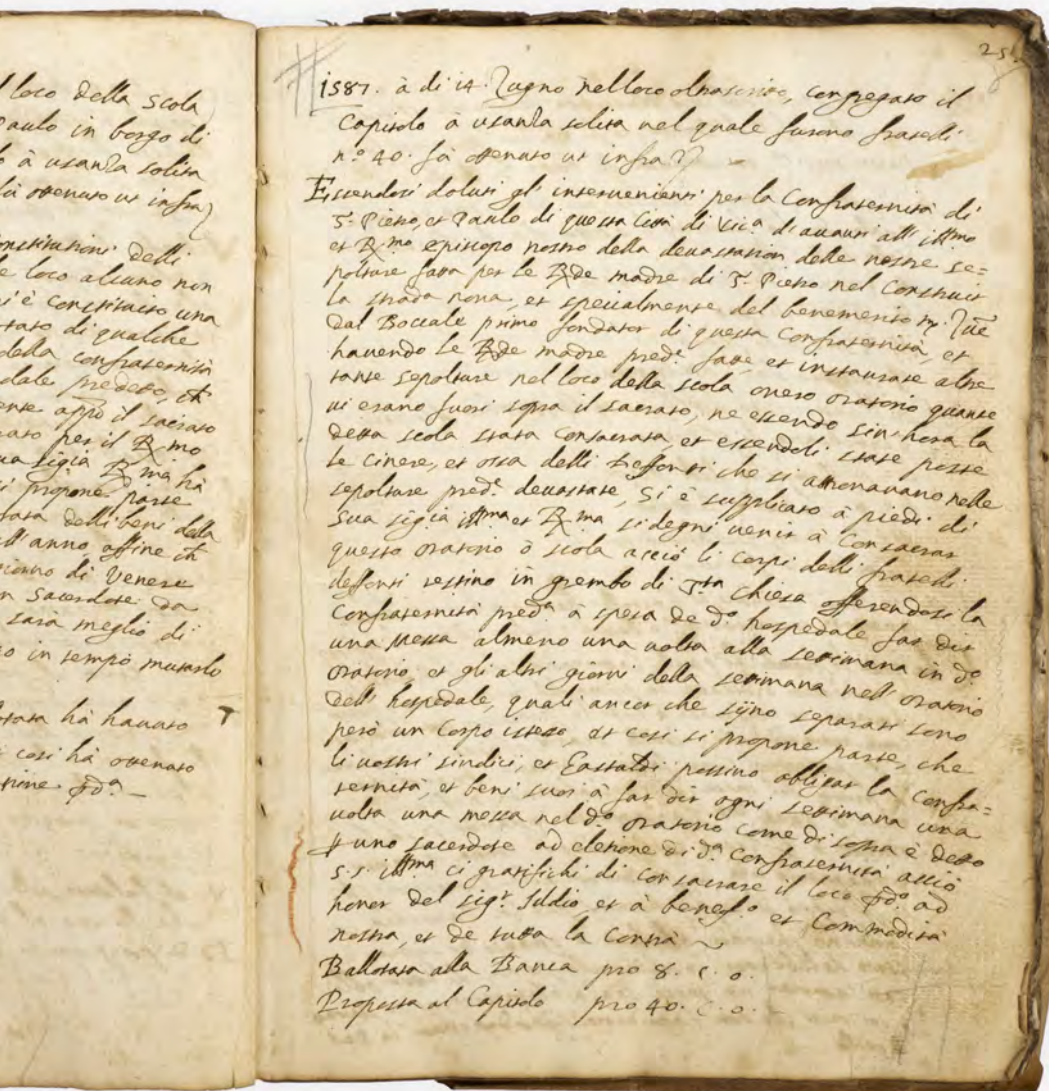 l loco della scola
Paulo in borgo di
o à usanza solita
fù ottenuto ut infra
onstitutioni delli
e loco alcuno non
si è constituito una
trato di qualche
della confraternità
dale predetto, ch
ente appò il sacrato
rato per il R.mo
ua sigia R.ma hà
si propone parte
tata delli beni della
ll' anno affine ch
giorno di Venere
n Sacerdote da
sarà meglio di
o in tempo mutarlo
otata hà havuto
i cosi hà ottenuto
tione pda
25
1587. à di 14. Zugno nel loco oltrascritto, congregato il
Capitolo à usanza solita nel quale furono fratelli
n.o 40. fù ottenuto ut infra
Essendosi doluti gl' intervenienti per la Confraternità di
S. Pietro, et Paulo di questa Città di Vic.a di avanti all' illmo
et R.mo episcopo nostro della devastation delle nostre se=
polture fatta per le R.de madre di S. Pietro nel construir
la strada nova, et specialmente del benemerito m. Zue
dal Boccale primo fondator di questa Confraternità, et
havendo le R.de madre pred.e fatte, et instaurate altre
tante sepolture nel loco della scola overo oratorio quante
vi erano fuori sopra il sacrato, ne essendo sin' hora la
detta scola stata consacrata et essendoli state poste
le cinere, et ossa delli deffonti che si attrovavano nelle
sepolture pred.e devastate, Si è supplicato à piedi di
Sua sigia illma et R.ma si degni venir à Consacrar
questo oratorio ò scola acciò li corpi delli fratelli
deffonti restino in grembo di S.ta Chiesa offerendosi la
Confraternità pred.a à spesa de d.o hospedale far dir
una messa almeno una volta alla settimana in d.o
oratorio, et gli altri giorni della settimana nell' oratorio
dell' hospedale, quali ancor che sijno separati sono
però un Corpo istesso, et cosi si propone parte, che
li nostri sindici, et Gastaldi possino obligar la confra=
ternità, et beni suoi à far dir ogni settimana una
volta una messa nel d.o oratorio come di sopra è detto
p uno sacerdote ad eletione di d.a Confraternità acciò
s.s. illma ci gratifichi di consacrare il loco pdo ad
honor del sigr. Iddio et à benef.o et Commodità
nostra, et de tutta la Contrà
Ballotata alla Banca pro 8. c. o.
Proposta al Capitolo pro 40. c. o.